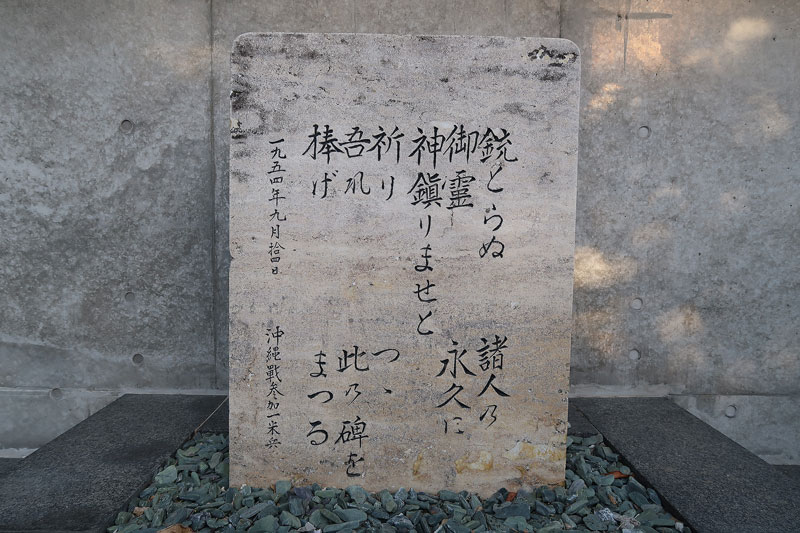 銃とらぬ 諸人の
御霊 永久に
神鎭りませと
祈り つゝ
吾れ 此の碑を
捧げ まつる
一九五四年九月拾四日 沖縄戰参加一米兵